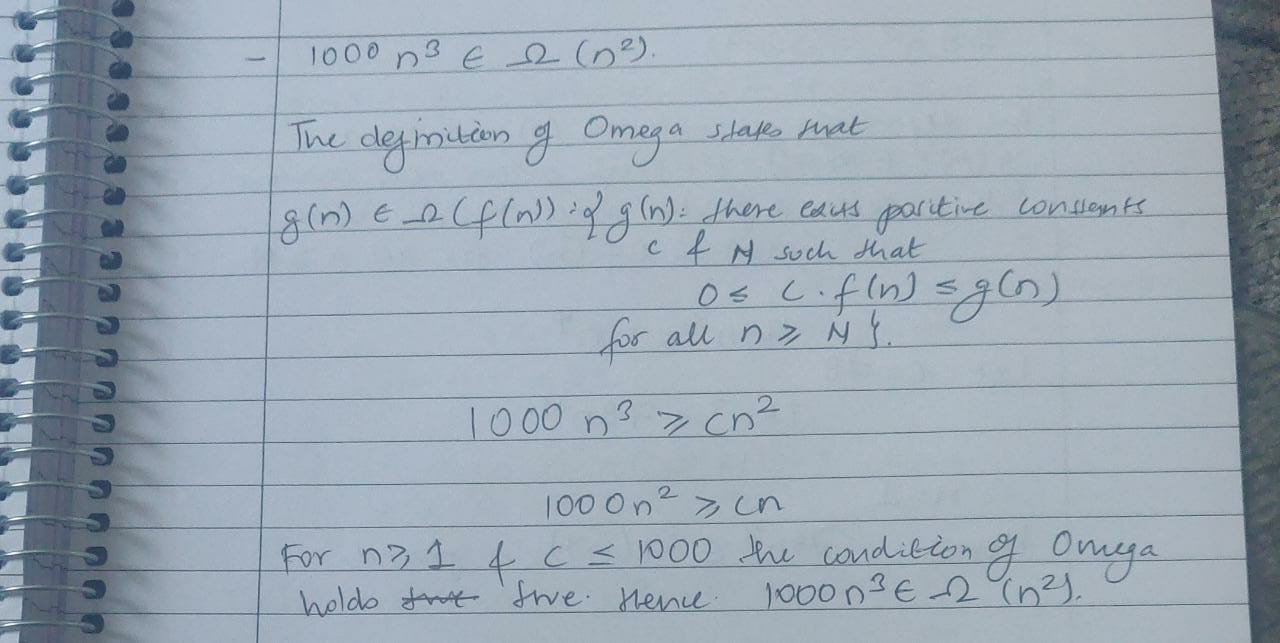 - 1000 n³ ∈ Ω (n²).
The definition of Omega states that
g(n) ∈ Ω (f(n)) : { g(n): there exists positive constants
c & N such that
0 ≤ c . f(n) ≤ g(n)
for all n ≥ N }.
1000 n³ ≥ cn²
1000n² ≥ cn
For n ≥ 1 & c ≤ 1000 the condition of Omega
holds true true. Hence. 1000n³ ∈ Ω (n²).